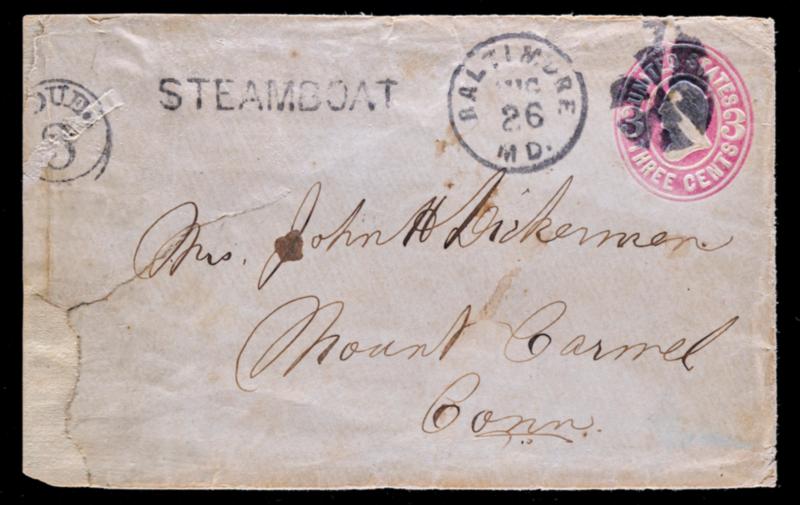 DUE.
3
STEAMBOAT
BALTIMORE
AUG
26
MD.
UNITED STATES
3 3
THREE CENTS
Mrs. John H Dickerman
Mount Carmel
Conn.